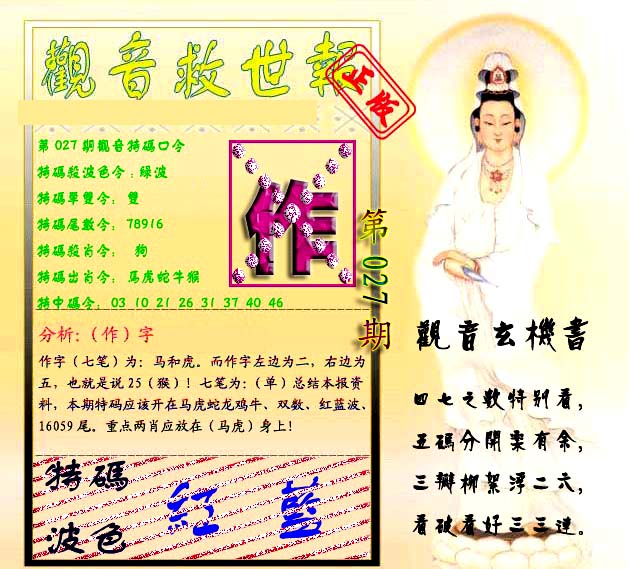 觀音救世報
正版
第027期觀音特碼口令
特碼殺波色令:綠波
特碼單雙令: 雙
特碼尾數令: 78916
特碼殺肖令: 狗
特碼出肖令: 馬虎蛇牛猴
特中碼令: 03 10 21 26 31 37 40 46
作
第027期
分析:(作)字
作字（七笔）为：马和虎。而作字左边为二，右边为
五，也就是说25（猴）！七笔为：（单）总结本报资
料，本期特码应该开在马虎蛇龙鸡牛、双数、红蓝波、
16059尾。重点两肖应放在（马虎）身上！
特碼
波色
紅 藍
觀音玄機書
四七之数特别看，
五碼分開栾有余，
三瓣柳絮浮二六，
看破看好三三連。